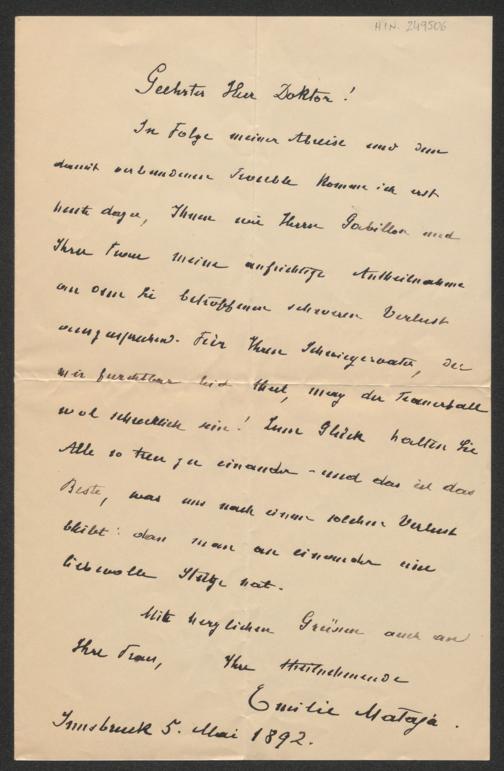 HIN. 249506
Geehrter Herr Doktor!
In Folge meiner Abreise und dem
damit verbundenen Trouble komme ich erst
heute dazu, Ihnen wie Herrn Gabillon und
Ihrer Frau meine aufrichtige Antheilnahme
an dem Sie betroffenen schweren Verlust
auszusprechen. Für Ihren Schwiegervater, der
mir furchtbar leid thut, mag der Trauerfall
wol schrecklich sein! Zum Glück halten Sie
Alle so treu zu einander – und das ist das
Beste, was uns nach einem solchen Verlust
bleibt: dass man an einander eine
liebevolle Stütze hat.
Mit herzlichen Grüssen auch an
Ihre Frau, Ihre theilnehmende
Emilie Mataja.
Innsbruck 5. Mai 1892.